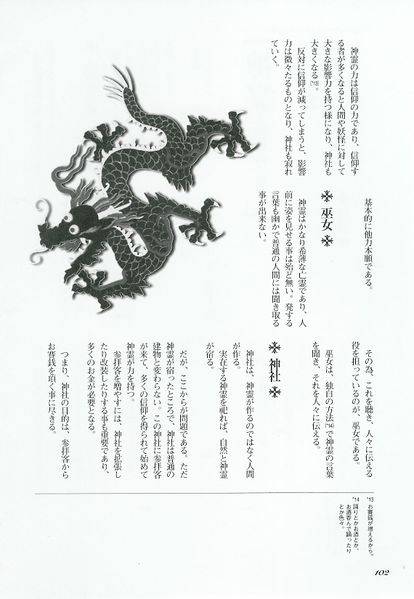 神霊の力は信仰の力であり、信仰す
る者が多くなると人間や妖怪に対して
大きな影響力を持つ様になり、神社も
大きくなる*13。
反対に信仰が減ってしまうと、影響
力は微々たるものとなり、神社も寂れ
ていく。
基本的に他力本願である。
巫女
神霊はかなり希薄な亡霊であり、人
前に姿を見せる事は殆ど無い。発する
言葉も幽かで普通の人間には聞き取る
事が出来ない。
その為、これを聴き、人々に伝える
役を担っているのが、巫女である。
巫女は、独自の方法*14で神霊の言葉
を聞き、それを人々に伝える。
神社
神社は、神霊が作るのではなく人間
が作る。
実在する神霊を祀れば、自然と神霊
が宿る。
だが、ここからが問題である。ただ
神霊が宿ったところで、神社は普通の
建物と変わらない。この神社に参拝客
が来て、多くの信仰を得られて始めて
神霊が力を持つ。
参拝客を増やすには、神社を拡張し
たり改装したりする事も重要であり、
多くのお金が必要となる。
つまり、神社の目的は、参拝客から
お賽銭を頂く事に尽きる。
*13 お賽銭が増えるから。
*14 踊りとかお酒とか、
お酒呑んで踊ったり
とか色々。
102